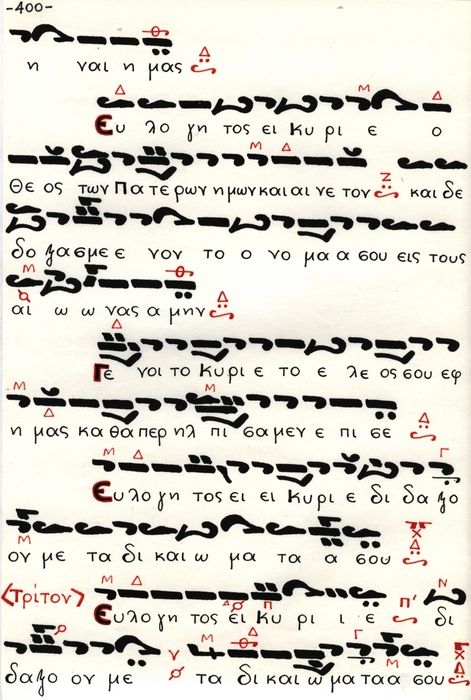 -400-
η ναι η μας
Ευ λο γη τος ει Κυ ρι ε ο
Θε ος των Πα τε ρων η μων και αι νε τον και δε
δο ξασ με ε νον το ο νο μα α σου εις τους
αι ω ω νας α μην
Γε νοι το Κυ ρι ε το ε λε ος σου εφ
η μας κα θα περ ηλ πι σα μεν ε πι σε
Ευ λο γη τος ει ει Κυ ρι ε δι δα ξο
ον με τα δι και ω μα τα α σου
⟨Τρίτον⟩ Ευ λο γη τος ει Κυ ρι ι ε δι
δα ξο ον με τα δι και ω μα τα α σου